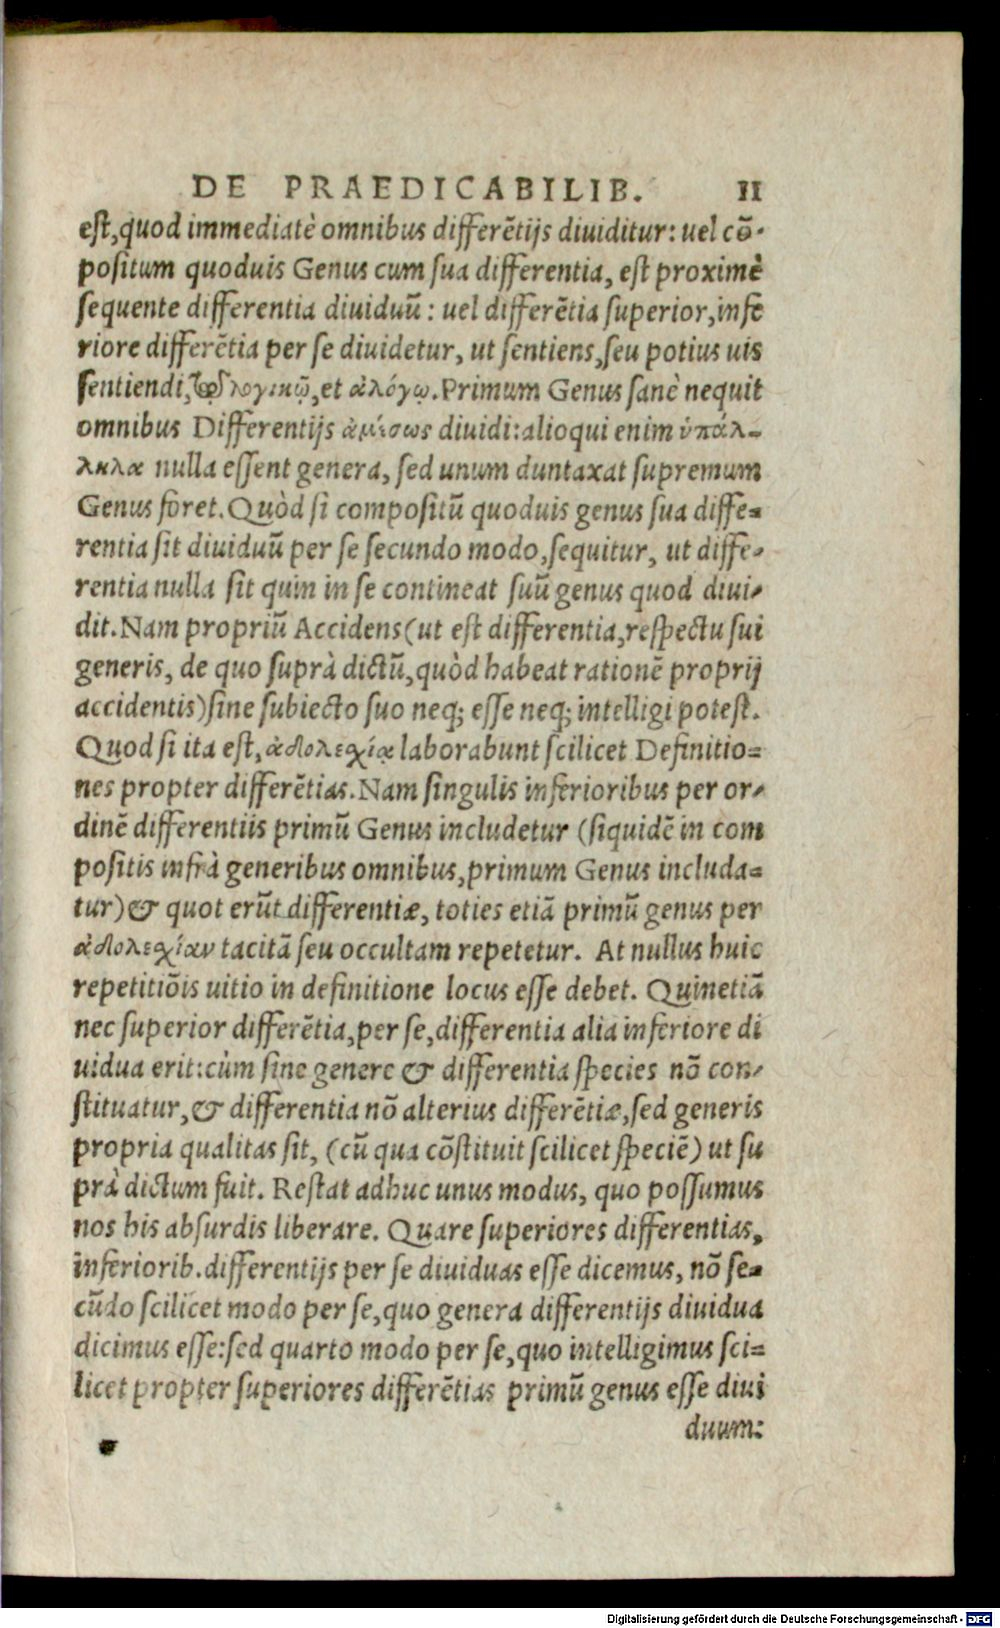 DE PRAEDICABILIB. 11
est, quod immediatè omnibus differẽtijs diuiditur: uel cõ-
positum quoduis Genus cum sua differentia, est proximè
sequente differentia diuiduũ: uel differẽtia superior, infe
riore differẽtia per se diuidetur, ut sentiens, seu potius uis
sentiendi, λογικῷ, et ἀλόγῳ. Primum Genus sanè nequit
omnibus Differentijs ἀμέσως diuidi: alioqui enim ὑπάλ-
ληλα nulla essent genera, sed unum duntaxat supremum
Genus foret. Quòd si compositũ quoduis genus sua diffe-
rentia sit diuiduũ per se secundo modo, sequitur, ut diffe-
rentia nulla sit quin in se contineat suũ genus quod diui-
dit. Nam propriũ Accidens (ut est differentia, respectu sui
generis, de quo suprà dictũ, quòd habeat rationẽ proprij
accidentis) sine subiecto suo neq; esse neq; intelligi potest.
Quod si ita est, ἀδολεχίᾳ laborabunt scilicet Definitio-
nes propter differẽtias. Nam singulis inferioribus per or-
dinẽ differentiis primũ Genus includetur (siquidẽ in com
positis infrà generibus omnibus, primum Genus includa-
tur) & quot erũt differentiæ, toties etiã primũ genus per
ἀδολεχίαν tacitã seu occultam repetetur. At nullus huic
repetitiõis uitio in definitione locus esse debet. Quinetiã
nec superior differẽtia, per se, differentia alia inferiore di
uidua erit: cùm sine genere & differentia species nõ con-
stituatur, & differentia nõ alterius differẽtiæ, sed generis
propria qualitas sit, (cũ qua cõstituit scilicet speciẽ) ut su
prà dictum fuit. Restat adhuc unus modus, quo possumus
nos his absurdis liberare. Quare superiores differentias,
inferiorib. differentijs per se diuiduas esse dicemus, nõ se-
cũdo scilicet modo per se, quo genera differentijs diuidua
dicimus esse: sed quarto modo per se, quo intelligimus sci-
licet propter superiores differẽtias primũ genus esse diui
duum:
Digitalisierung gefördert durch die Deutsche Forschungsgemeinschaft - DFG